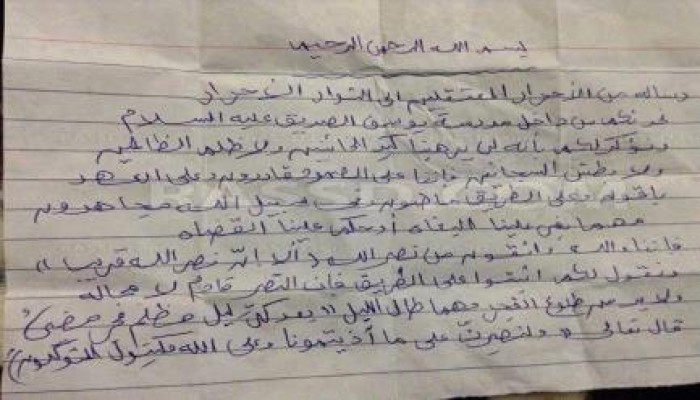 بسم الله الرحمن الرحيم
رسالة من الأحرار المعتقلين إلى الثوار الأحرار
نحدثكم من داخل مدرسة يوسف الصديق عليه السلام
ونؤكد لكم أنه لن يرهبنا كيد الخائنين ولا ظلم الظالمين
ولا بطش السجانين فإننا على الصمود قادرون وعلى العهد
باقون وعلى الطريق ماضون وفي سبيل الله مجاهدون
مهما بغى علينا البغاه أو حكم علينا القضاه
فإننا والله واثقون من نصر الله (ألا إن نصر الله قريب)
ونقول لكم اثبتوا على الطريق فإن النصر قادم لا محالة
ولابد من طلوع الفجر مهما طال الليل "بعد كل ليل مظلم فجر مضئ"
قال تعالى "ولنصبرن على ما أذيتمونا وعلى الله فليتوكل المتوكلون"